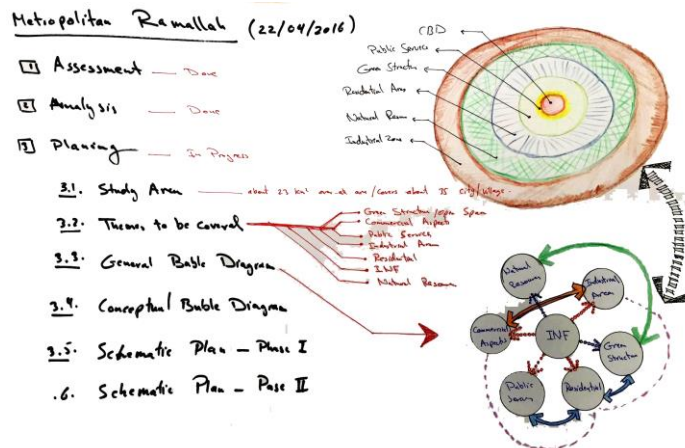 Metropolitan Ramallah (22/04/2016)
1 Assessment — Done
2 Analysis — Done
3 Planing — In Progress
3.1. Study Area — about 23 km² are/covers about 35 City/Village.
3.2. Themes to be coverd
Green Structur/open Spaces
Commercial Aspects
Public Services
Industrial Area
Residential
INF
Natural Resours
3.3. General Buble Diagram
3.4. Conceptual Buble Diagram
3.5. Schematic Plan – Phase I
.6. Schematic Plan – Pase II
CBD
Public Services
Green Structur
Residential Area
Natural Resours
Industrial Zone
Natural Resours
Industrial Area
Commercial Aspects
INF
Green Structur
Public Servics
Residential